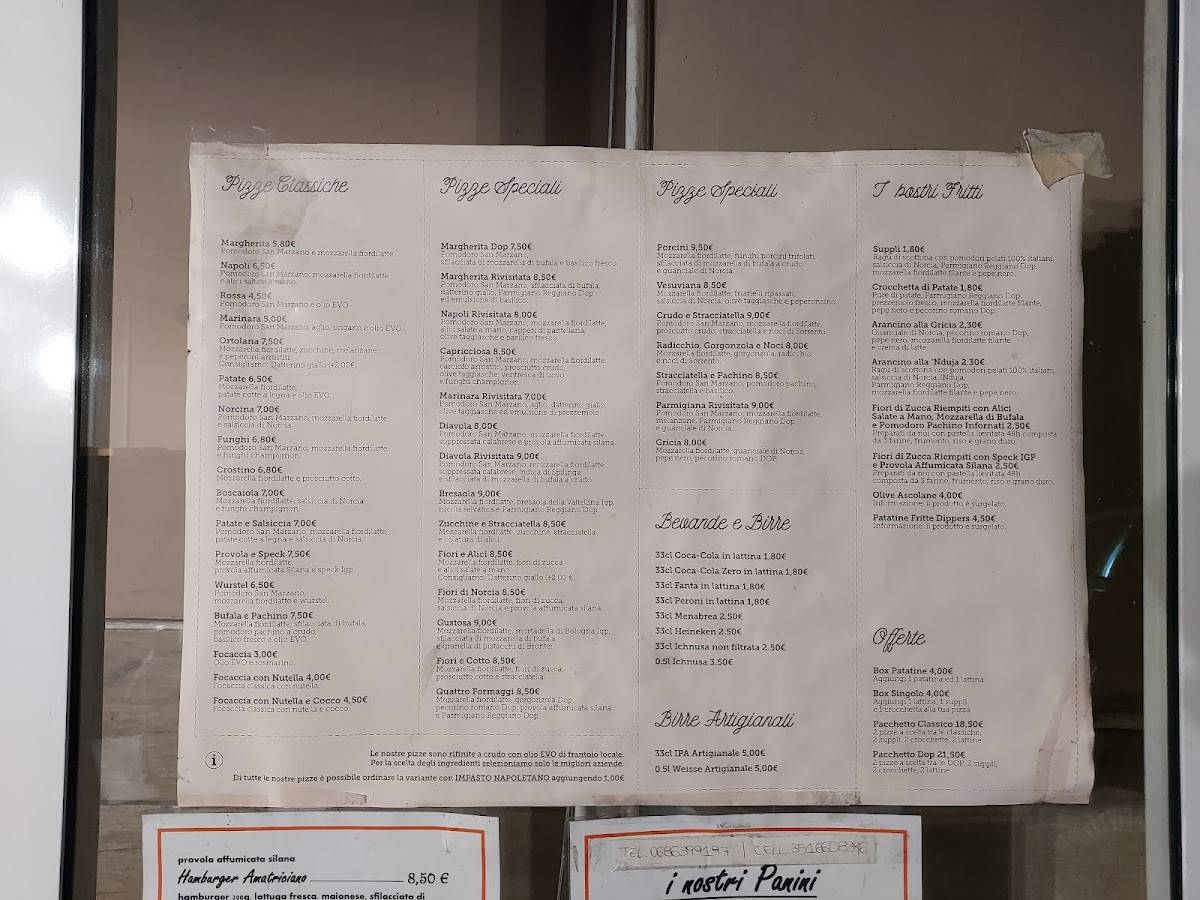 Pizze Classiche
Margherita 5,80€
Pomodoro San Marzano e mozzarella fiordilatte.
Napoli 6,50€
Pomodoro San Marzano, mozzarella fiordilatte
e alici salate a mano.
Rossa 4,50€
Pomodoro San Marzano e olio EVO.
Marinara 5,00€
Pomodoro San Marzano, aglio, origano e olio EVO.
Ortolana 7,50€
Mozzarella fiordilatte, zucchine, melanzane
e peperoni arrostiti.
Consigliamo: Datterino giallo (+2,00€)
Patate 6,50€
Mozzarella fiordilatte,
patate cotte a legna e olio EVO.
Norcina 7,00€
Pomodoro San Marzano, mozzarella fiordilatte
e salsiccia di Norcia.
Funghi 6,80€
Pomodoro San Marzano, mozzarella fiordilatte
e funghi champignon.
Crostino 6,80€
Mozzarella fiordilatte e prosciutto cotto.
Boscaiola 7,00€
Mozzarella fiordilatte, salsiccia di Norcia
e funghi champignon.
Patate e Salsiccia 7,00€
Pomodoro San Marzano, mozzarella fiordilatte,
patate cotte a legna e salsiccia di Norcia.
Provola e Speck 7,50€
Mozzarella fiordilatte,
provola affumicata Silana e speck Igp.
Wurstel 6,50€
Pomodoro San Marzano,
mozzarella fiordilatte e wurstel.
Bufala e Pachino 7,50€
Mozzarella fiordilatte, sfilacciata di bufala,
pomodoro pachino a crudo
basilico fresco e olio EVO.
Focaccia 3,00€
Olio EVO e rosmarino.
Focaccia con Nutella 4,00€
Focaccia classica con nutella.
Focaccia con Nutella e Cocco 4,50€
Focaccia classica con nutella e cocco.
Pizze Speciali
Margherita Dop 7,50€
Pomodoro San Marzano,
sfilacciata di mozzarella di bufala e basilico fresco.
Margherita Rivisitata 8,50€
Pomodoro San Marzano, sfilacciata di bufala,
datterino giallo, Parmigiano Reggiano Dop
ed emulsione di basilico.
Napoli Rivisitata 8,00€
Pomodoro San Marzano, mozzarella fiordilatte,
alici salate a mano, capperi di pantelleria,
olive taggiasche e basilico fresco.
Capricciosa 8,50€
Pomodoro San Marzano, mozzarella fiordilatte,
carciofo arrostito, prosciutto crudo,
olive taggiasche, ventresca di uovo
e funghi champignon.
Marinara Rivisitata 7,00€
Pomodoro San Marzano, aglio, datterino giallo,
olive taggiasche ed emulsione di prezzemolo.
Diavola 8,00€
Pomodoro San Marzano, mozzarella fiordilatte,
soppressata calabrese e provola affumicata silana.
Diavola Rivisitata 9,00€
Pomodoro San Marzano, mozzarella fiordilatte
soppressata calabrese, nduja di Spilinga
e sfilacciata di mozzarella di bufala a crudo.
Bresaola 9,00€
Mozzarella fiordilatte, bresaola della Valtellina Igp,
rucola selvatica e Parmigiano Reggiano Dop.
Zucchine e Stracciatella 8,50€
Mozzarella fiordilatte, zucchine, stracciatella
e colatura di alici.
Fiori e Alici 8,50€
Mozzarella fiordilatte, fiori di zucca
e alici salate a mano.
Consigliamo: Datterino giallo (+2,00 €
Fiori di Norcia 8,50€
Mozzarella fiordilatte, fiori di zucca,
salsiccia di Norcia e provola affumicata silana.
Gustosa 9,00€
Mozzarella fiordilatte, mortadella di Bologna Igp,
sfilacciata di mozzarella di bufala
e granella di pistacchi di Bronte.
Fiori e Cotto 8,50€
Mozzarella fiordilatte, fiori di zucca,
prosciutto cotto e stracciatella.
Quattro Formaggi 8,50€
Mozzarella fiordilatte, gorgonzola Dop,
pecorino romano Dop, provola affumicata silana
e Parmigiano Reggiano Dop.
Pizze Speciali
Porcini 9,50€
Mozzarella fiordilatte, funghi porcini trifolati,
sfilacciata di mozzarella di bufala a crudo
e guanciale di Norcia.
Vesuviana 8,50€
Mozzarella fiordilatte, friarielli ripassati,
salsiccia di Norcia, olive taggiasche e peperoncino.
Crudo e Stracciatella 9,00€
Pomodoro San Marzano, mozzarella fiordilatte,
prosciutto crudo, stracciatella e noci di Sorrento.
Radicchio, Gorgonzola e Noci 8,00€
Mozzarella fiordilatte, gorgonzola, radicchio
e noci di Sorrento.
Stracciatella e Pachino 8,50€
Pomodoro San Marzano, pomodoro pachino,
stracciatella e basilico.
Parmigiana Rivisitata 9,00€
Pomodoro San Marzano, mozzarella fiordilatte,
melanzane, Parmigiano Reggiano Dop
e guanciale di Norcia.
Gricia 8,00€
Mozzarella fiordilatte, guanciale di Norcia,
pepe nero, pecorino romano DOP.
Bevande e Birre
33cl Coca-Cola in lattina 1,80€
33cl Coca-Cola Zero in lattina 1,80€
33cl Fanta in lattina 1,80€
33cl Peroni in lattina 1,80€
33cl Menabrea 2.50€
33cl Heineken 2.50€
33cl Ichnusa non filtrata 2.50€
0.5l Ichnusa 3.50€
Birre Artigianali
33cl IPA Artigianale 5,00€
0.5l Weisse Artigianale 5,00€
I nostri Fritti
Supplì 1,80€
Ragù di scottona con pomodori pelati 100% italiani,
salsiccia di Norcia, Parmigiano Reggiano Dop,
mozzarella fiordilatte filante e pepe nero.
Crocchetta di Patate 1,80€
Purè di patate, Parmigiano Reggiano Dop,
prezzemolo fresco, mozzarella fiordilatte filante,
pepe nero e pecorino romano Dop.
Arancino alla Gricia 2,30€
Guanciale di Norcia, pecorino romano Dop,
pepe nero, mozzarella fiordilatte filante
e crema di latte.
Arancino alla 'Nduja 2.30€
Ragù di scottona con pomodori pelati 100% italiani,
salsiccia di Norcia, 'Nduja,
Parmigiano Reggiano Dop,
mozzarella fiordilatte filante e pepe nero.
Fiori di Zucca Riempiti con Alici
Salate a Mano, Mozzarella di Bufala
e Pomodoro Pachino Infornati 2,50€
Preparati da noi con pastella lievitata 48h composta
da 3 farine, frumento, riso e grano duro.
Fiori di Zucca Riempiti con Speck IGP
e Provola Affumicata Silana 2,50€
Preparati da noi con pastella lievitata 48h
composta da 3 farine, frumento, riso e grano duro.
Olive Ascolane 4,00€
Informazione: Il prodotto è surgelato.
Patatine Fritte Dippers 4,50€
Informazione: Il prodotto è surgelato.
Offerte
Box Patatine 4,00€
Aggiungi 1 patatina ed 1 lattina
Box Singolo 4,00€
Aggiungi 1 lattina, 1 supplì
e 1 crocchetta alla tua pizza
Pacchetto Classico 18,50€
2 pizze a scelta tra le classiche,
2 supplì, 2 crocchette, 2 lattine
Pacchetto Dop 21,50€
2 pizze a scelta tra le DOP, 2 supplì,
2 crocchette, 2 lattine
i
Le nostre pizze sono rifinite a crudo con olio EVO di frantoio locale.
Per la scelta degli ingredienti selezioniamo solo le migliori aziende.
Di tutte le nostre pizze è possibile ordinare la variante con IMPASTO NAPOLETANO aggiungendo 1,00€
provola affumicata silana
Hamburger Amatriciano 8,50 €
hamburger 200g, lattuga fresca, maionese, sfilacciata di
TEL. 0686399197 | CELL.
i nostri Panini